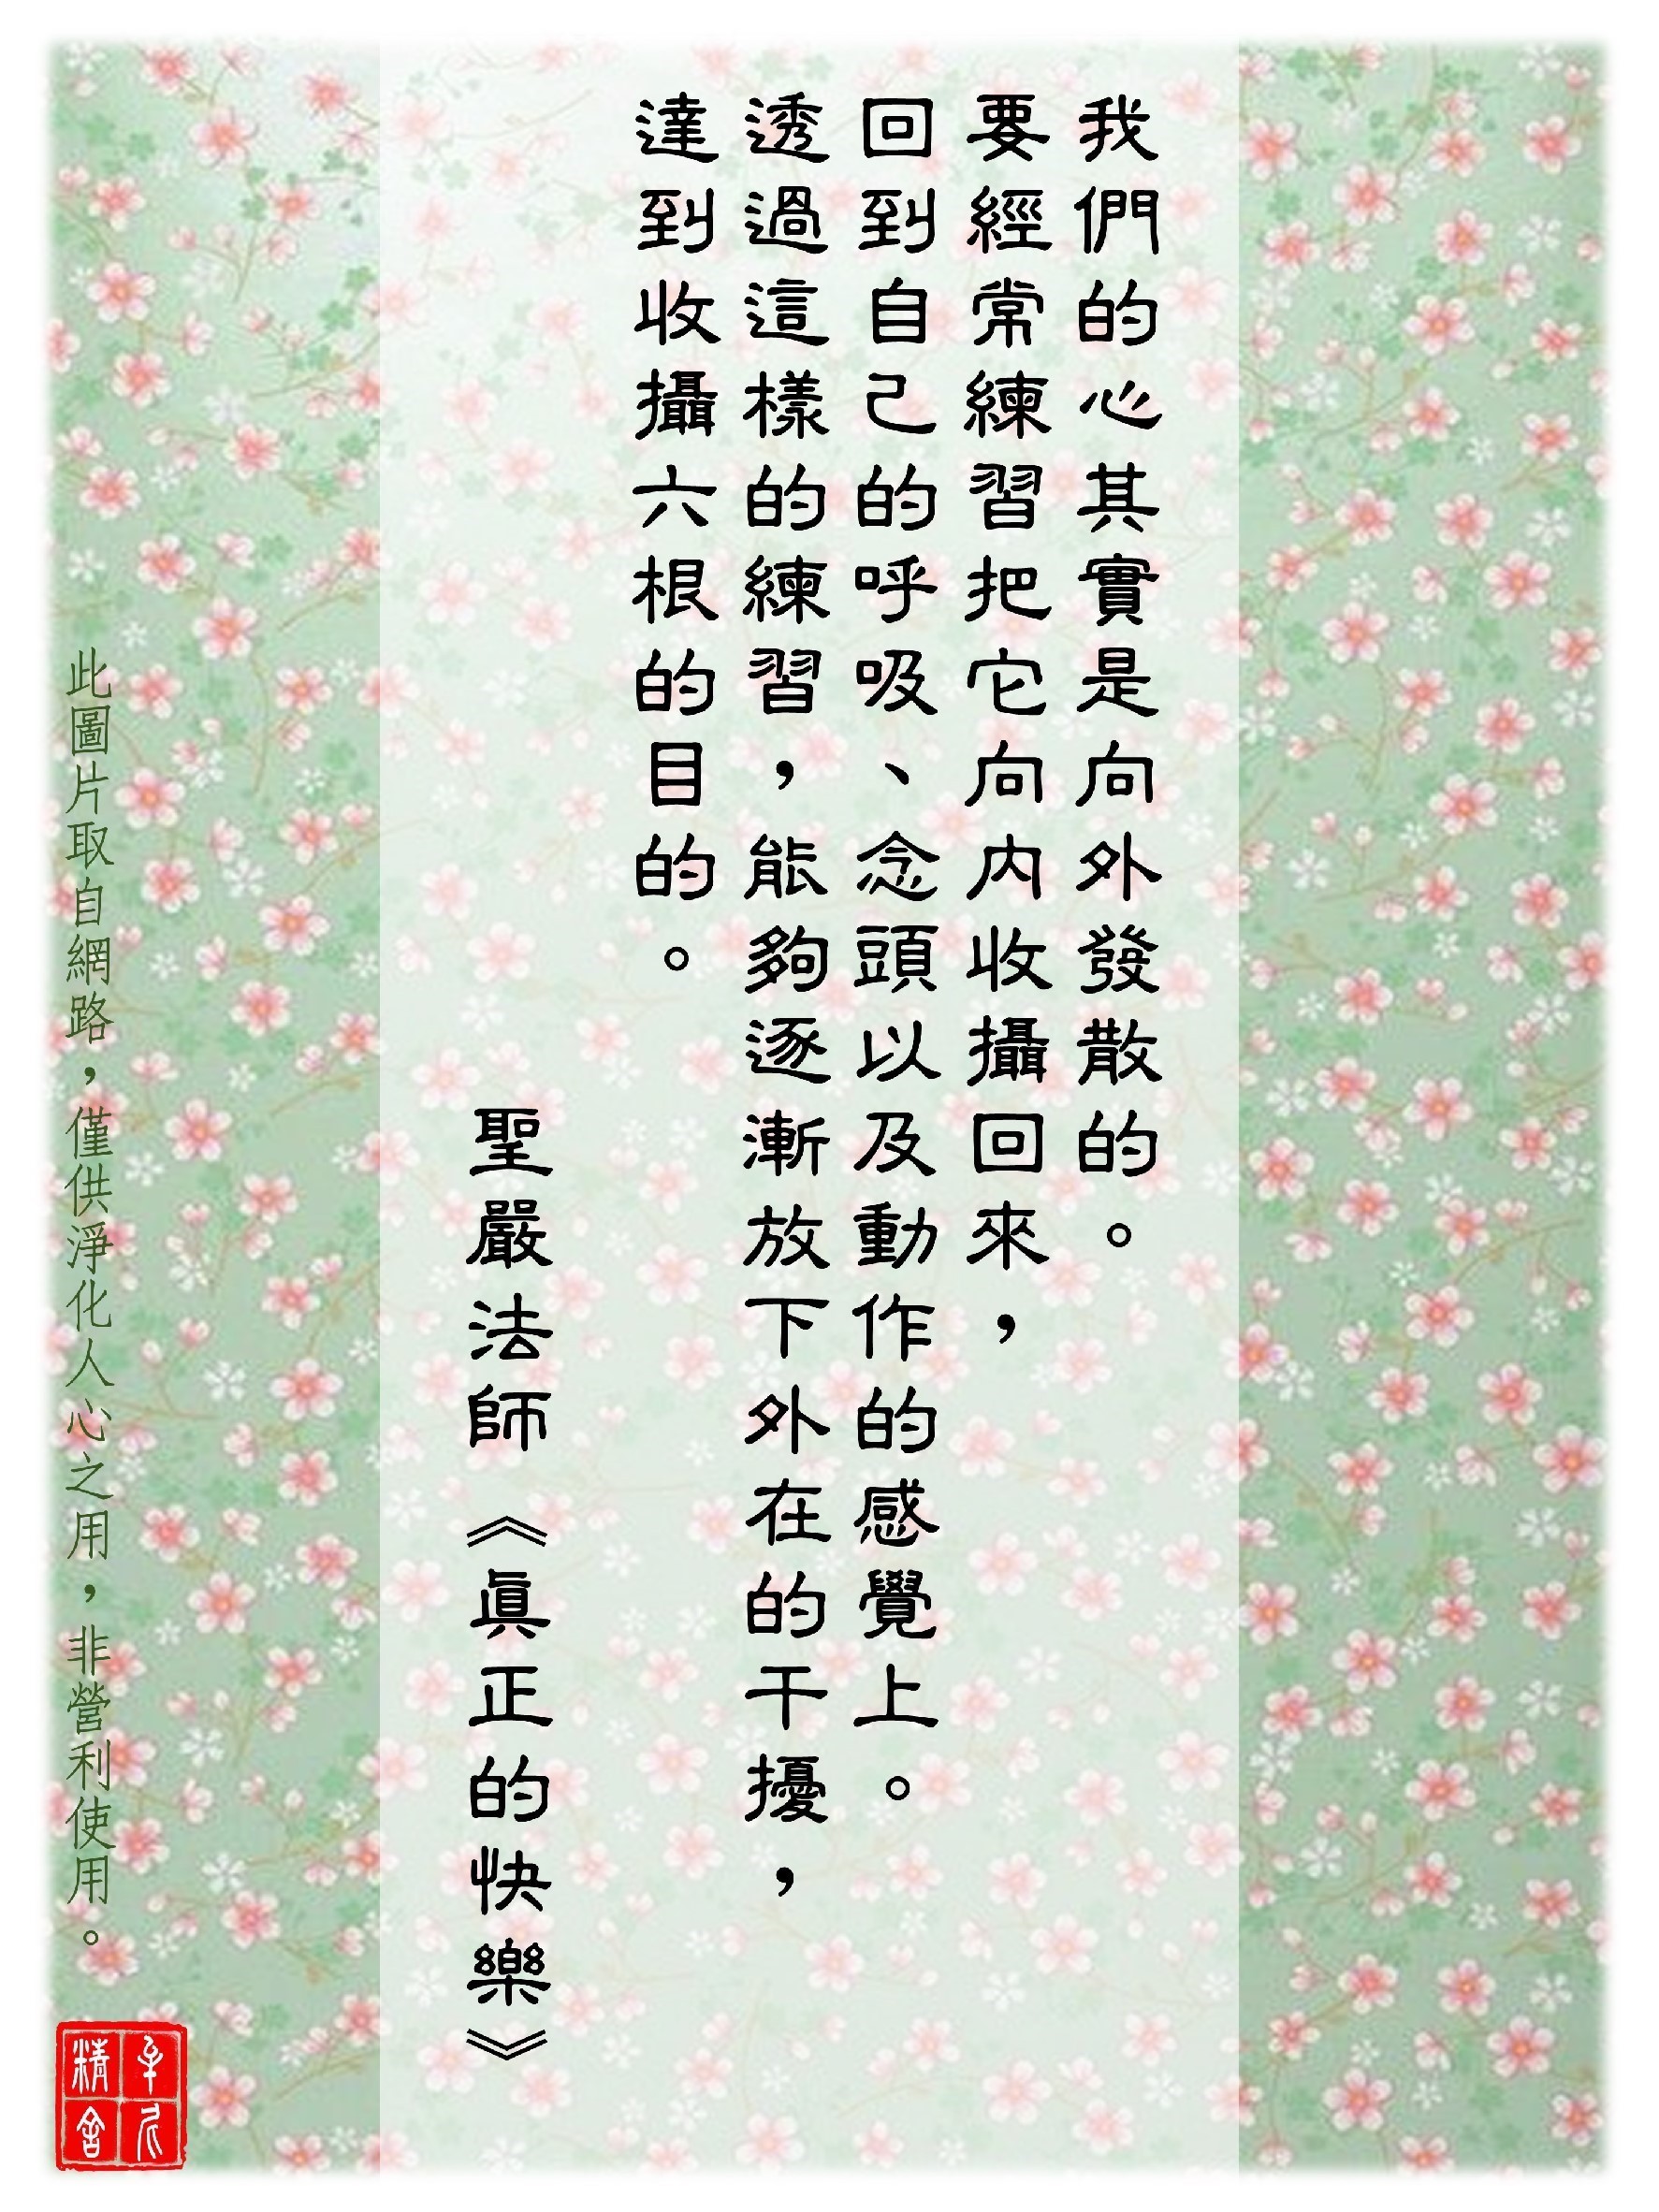 我們的心其實是向外發散的。
要經常練習把它向內收攝回來，
回到自己的呼吸、念頭以及動作的感覺上。
透過這樣的練習，能夠逐漸放下外在的干擾，
達到收攝六根的目的。
聖嚴法師《真正的快樂》
此圖片取自網路，僅供淨化人心之用，非營利使用。
精舍